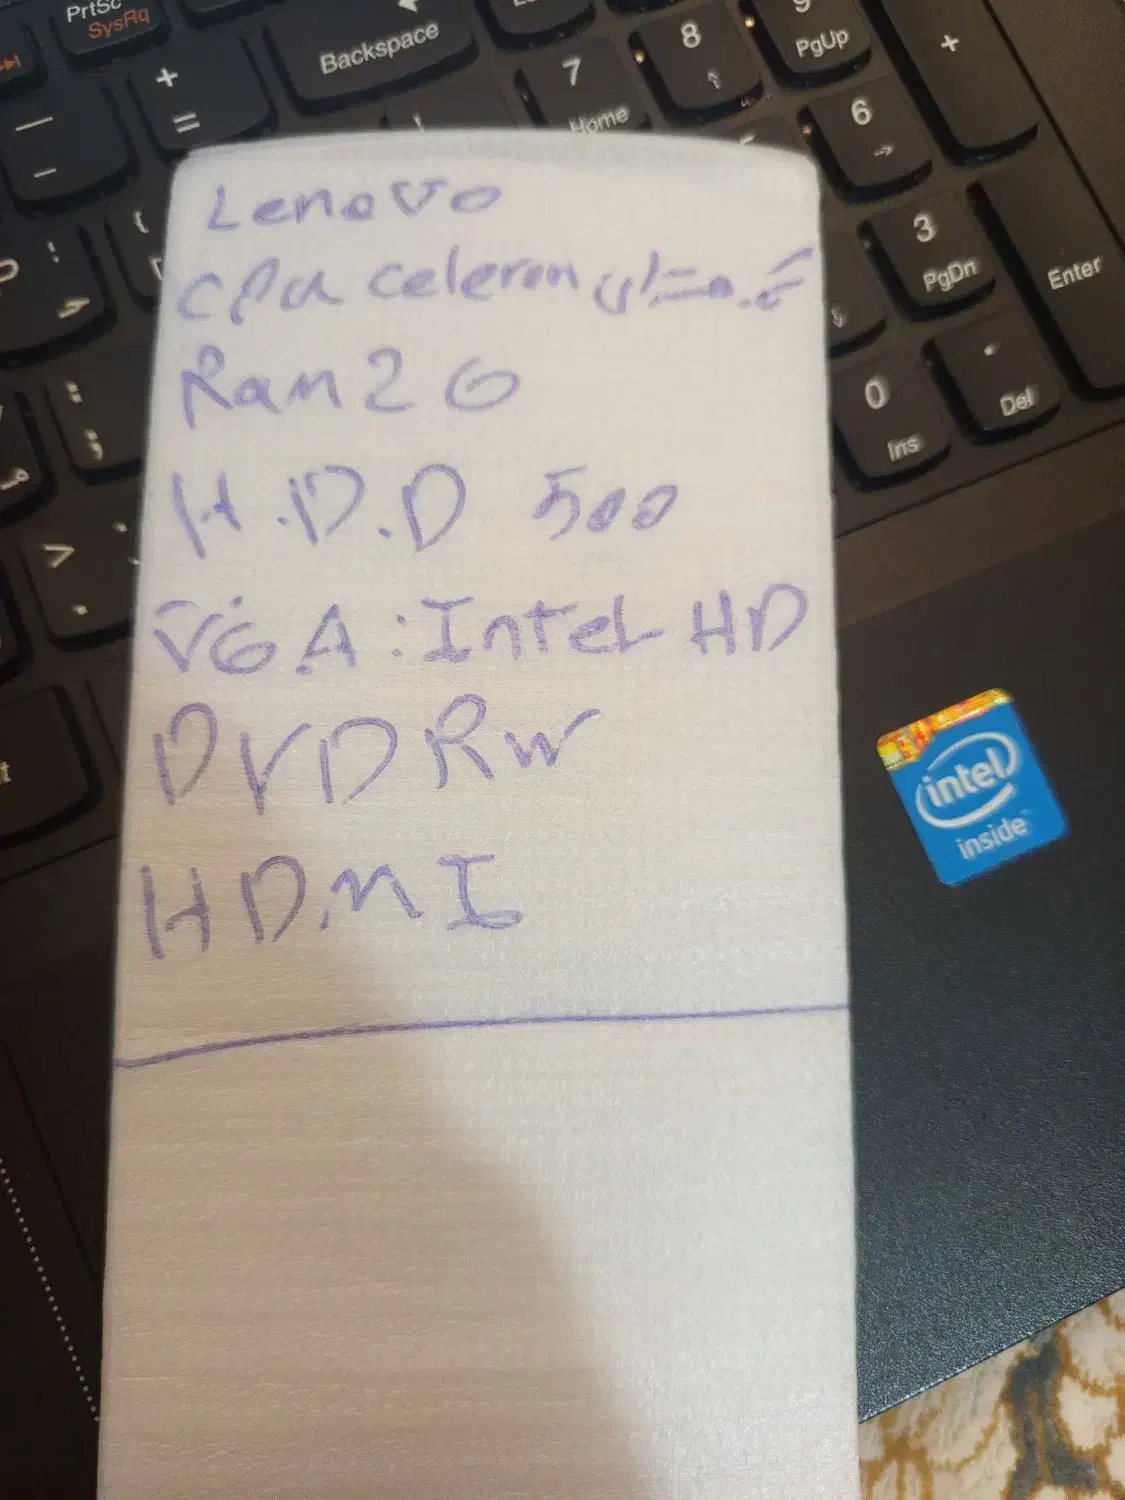 PrtSc
SysRq
Backspace
+
=
7
Home
8
9
PgUp
+
6
3
PgDn
Enter
0
Ins
.
Del
Lenovo
CPU Celeron
Ram 2 G
H.D.D 500
VGA: Intel HD
DVD RW
HDMI
intel
inside